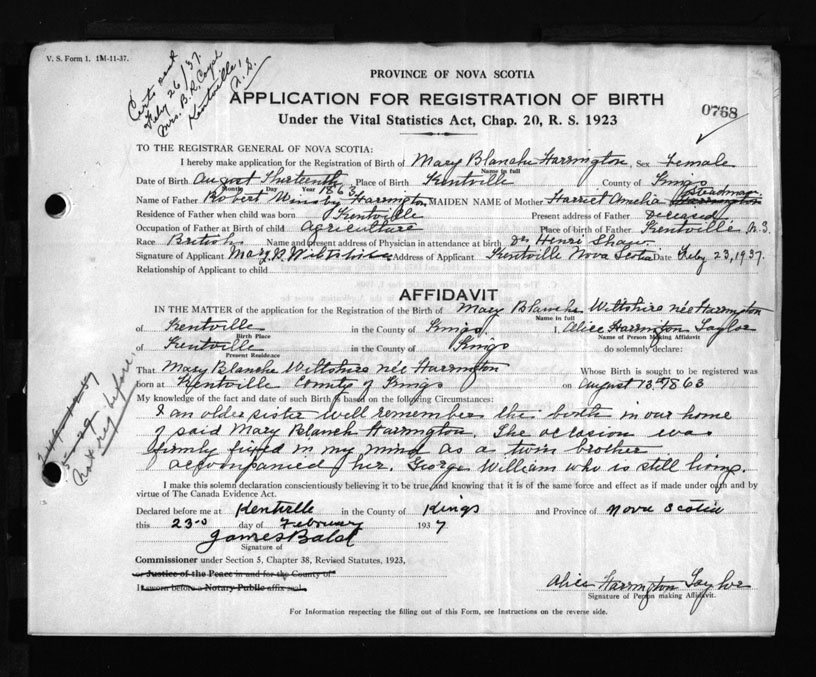 V. S. Form 1. 1M-11-37.
Certs sent
Feby 26/37.
Mrs. B. R.
Kentville,
N.S.
PROVINCE OF NOVA SCOTIA
APPLICATION FOR REGISTRATION OF BIRTH
Under the Vital Statistics Act, Chap. 20, R. S. 1923
0768
TO THE REGISTRAR GENERAL OF NOVA SCOTIA:
I hereby make application for the Registration of Birth of Mary Blanche Harrington, Sex Female
Name in full
Date of Birth August Thirteenth 1863 Place of Birth Kentville County of Kings
Month Day Year
Steadman
Name of Father Robert Harrington MAIDEN NAME of Mother Harriet Amelia Harrington
Residence of Father when child was born Kentville Present address of Father Deceased
Occupation of Father at Birth of child Agriculture Place of birth of Father Kentville N.S.
Race British Name and present address of Physician in attendance at birth Dr Henri
Signature of Applicant Mary B. Wiltshire Address of Applicant Kentville Nova Scotia Date Feby 23, 1937.
Relationship of Applicant to child
AFFIDAVIT
IN THE MATTER of the application for the Registration of the Birth of Mary Blanche Wiltshire née Harrington
Name in full
of Kentville in the County of Kings I, Alice Harrington Taylor
Birth Place Name of Person Making Affidavit
of Kentville in the County of Kings do solemnly declare:
Present Residence
That Mary Blanche Wiltshire née Harrington Whose Birth is sought to be registered was
born at Kentville County of Kings on August 13th 1863
My knowledge of the fact and date of such Birth is based on the following Circumstances:
I an older sister well remember the birth in our home
of said Mary Blanch Harrington. The occasion was
firmly fixed in my mind as a twin brother
accompanied her. George William who is still living.
not reg before.
I make this solemn declaration conscientiously believing it to be true and knowing that it is of the same force and effect as if made under oath and by
virtue of The Canada Evidence Act.
Declared before me at Kentville in the County of Kings and Province of Nova Scotia
this 23d day of February 1937
James Bald
Signature of
Commissioner under Section 5, Chapter 38, Revised Statutes, 1923,
or Justice of the Peace in and for the County of
If sworn before a Notary Public affix seal.
Alice Harrington Taylor
Signature of Person making Affidavit.
For Information respecting the filling out of this Form, see Instructions on the reverse side.